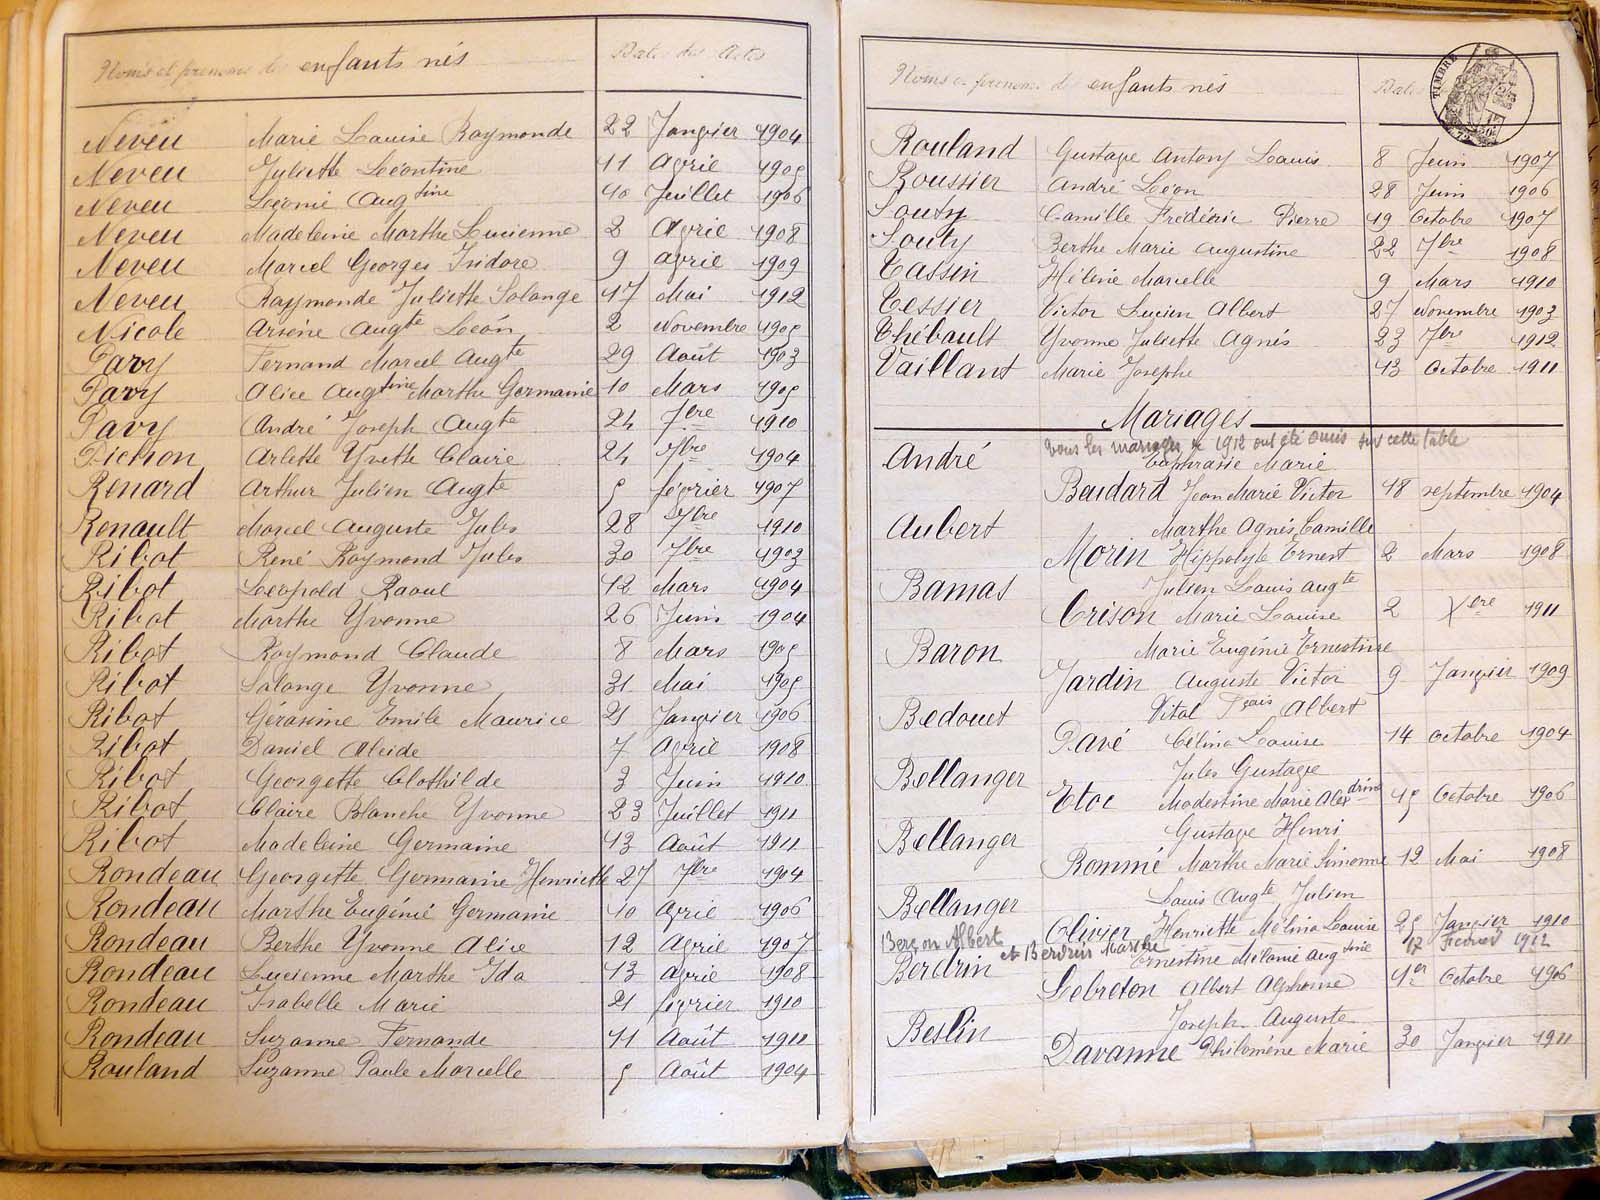 Noms et prénoms des enfants nés Dates des Actes
Neveu Marie Louise Raymonde 22 Janvier 1904
Neveu Juliette Léontine 11 Avril 1905
Neveu Léonie Augtine 10 Juillet 1906
Neveu Madeleine Marthe Lucienne 2 Avril 1908
Neveu Marcel Georges Isidore 9 avril 1909
Neveu Raymonde Juliette Solange 17 Mai 1912
Nicole Arsène Augte Léon 2 Novembre 1905
Pavy Fernand Marcel Augte 29 Août 1903
Pavy Alice Augtine Marthe Germaine 10 Mars 1905
Pavy André Joseph Augte 24 7bre 1910
Pichon Arlette Yvette Claire 24 7bre 1904
Renard Arthur Julien Augte 5 février 1907
Renault Marcel Auguste Jules 28 7bre 1910
Ribot René Raymond Jules 30 7bre 1903
Ribot Léopold Raoul 12 Mars 1904
Ribot Marthe Yvonne 26 Juin 1904
Ribot Raymond Claude 8 Mars 1905
Ribot Solange Yvonne 31 Mai 1905
Ribot Gérasime Emile Maurice 21 Janvier 1906
Ribot Daniel Alcide 7 Avril 1908
Ribot Georgette Clothilde 3 Juin 1910
Ribot Claire Blanche Yvonne 23 Juillet 1911
Ribot Madeleine Germaine 13 Août 1911
Rondeau Georgette Germaine Henriette 27 7bre 1904
Rondeau Marthe Eugénie Germaine 10 Avril 1906
Rondeau Berthe Yvonne Alice 12 Avril 1907
Rondeau Lucienne Marthe Ida 13 Avril 1908
Rondeau Isabelle Marie 21 février 1910
Rondeau Suzanne Fernande 11 Août 1911
Rouland Suzanne Paule Marcelle 5 Août 1904
Noms et prénoms des enfants nés Dates
TIMBRE
Rouland Gustave Antony Louis 8 Juin 1907
Roussier André Léon 28 Juin 1906
Souty Camille Frédéric Pierre 19 Octobre 1907
Souty Berthe Marie Augustine 22 7bre 1908
Tassin Hélène Marcelle 9 Mars 1910
Tessier Victor Lucien Albert 27 Novembre 1903
Thébault Yvonne Juliette Agnès 23 7bre 1912
Vaillant Marie Josephe 13 Octobre 1911
Mariages
Tous les mariages de 1912 ont été omis sur cette table
André Euphrasie Marie
Baudard Jean Marie Victor 18 septembre 1904
Aubert Marthe Agnès Camille
Morin Hippolyte Ernest 2 Mars 1908
Bamas Julien Louis Augte
Crison Marie Louise 2 Xbre 1911
Baron Marie Eugénie Ernestine
Jardin Auguste Victor 9 Janvier 1909
Bedouet Vital Fçois Albert
Pavé Célina Louise 14 Octobre 1904
Bellanger Jules Gustave
Etoc Modestine Marie Alexdrine 15 Octobre 1906
Bellanger Gustave Henri
Rommé Marthe Marie Simonne 12 Mai 1908
Bellanger Louis Augte Julien
Olivier Henriette Mélina Louise 25 Janvier 1910
Berson Albert et Berdrin Marthe 17 Février 1912
Berdrin Ernestine Mélanie Augtine
Lebreton Albert Alphonse 1er Octobre 1906
Beslin Joseph Auguste
Davanne Philomène Marie 30 Janvier 1911